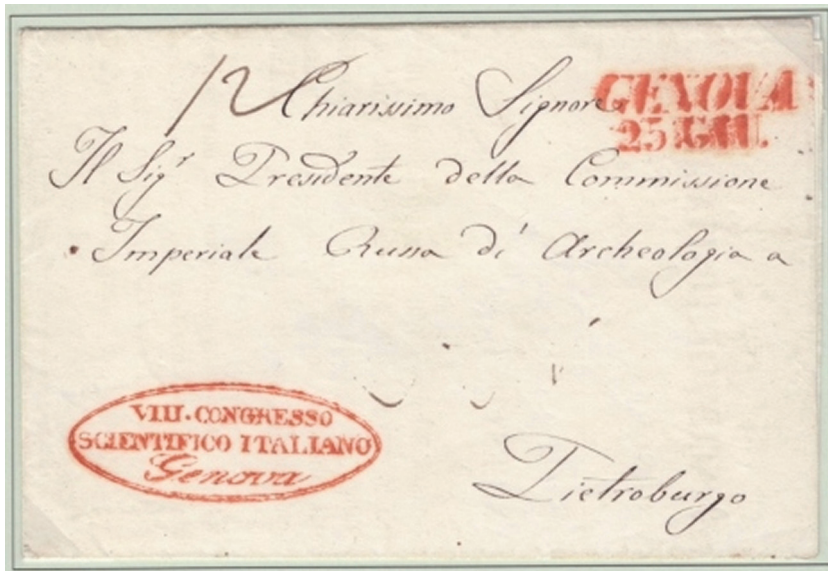 12
Chiarissimo Signore
GENOVA
25 GIU.
Il Sig.r Presidente della Commissione
Imperiale Russa di Archeologia a
Pietroburgo
VIII. CONGRESSO
SCIENTIFICO ITALIANO
Genova